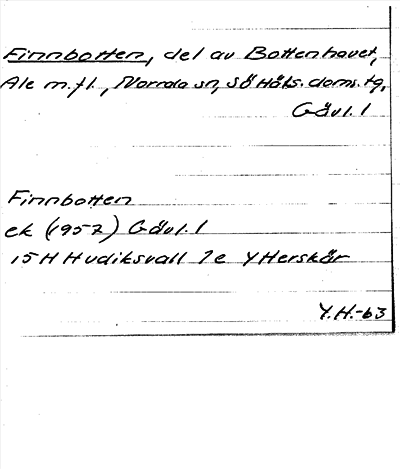 Finnbotten, del av Bottenhavet,
Ale m.fl., Norrala sn, Sö Häls. doms. tg,
Gävl. l
Finnbotten
ek (1957) Gävl. l
15 H Hudiksvall 7e Y Herskär
Y.H.-63